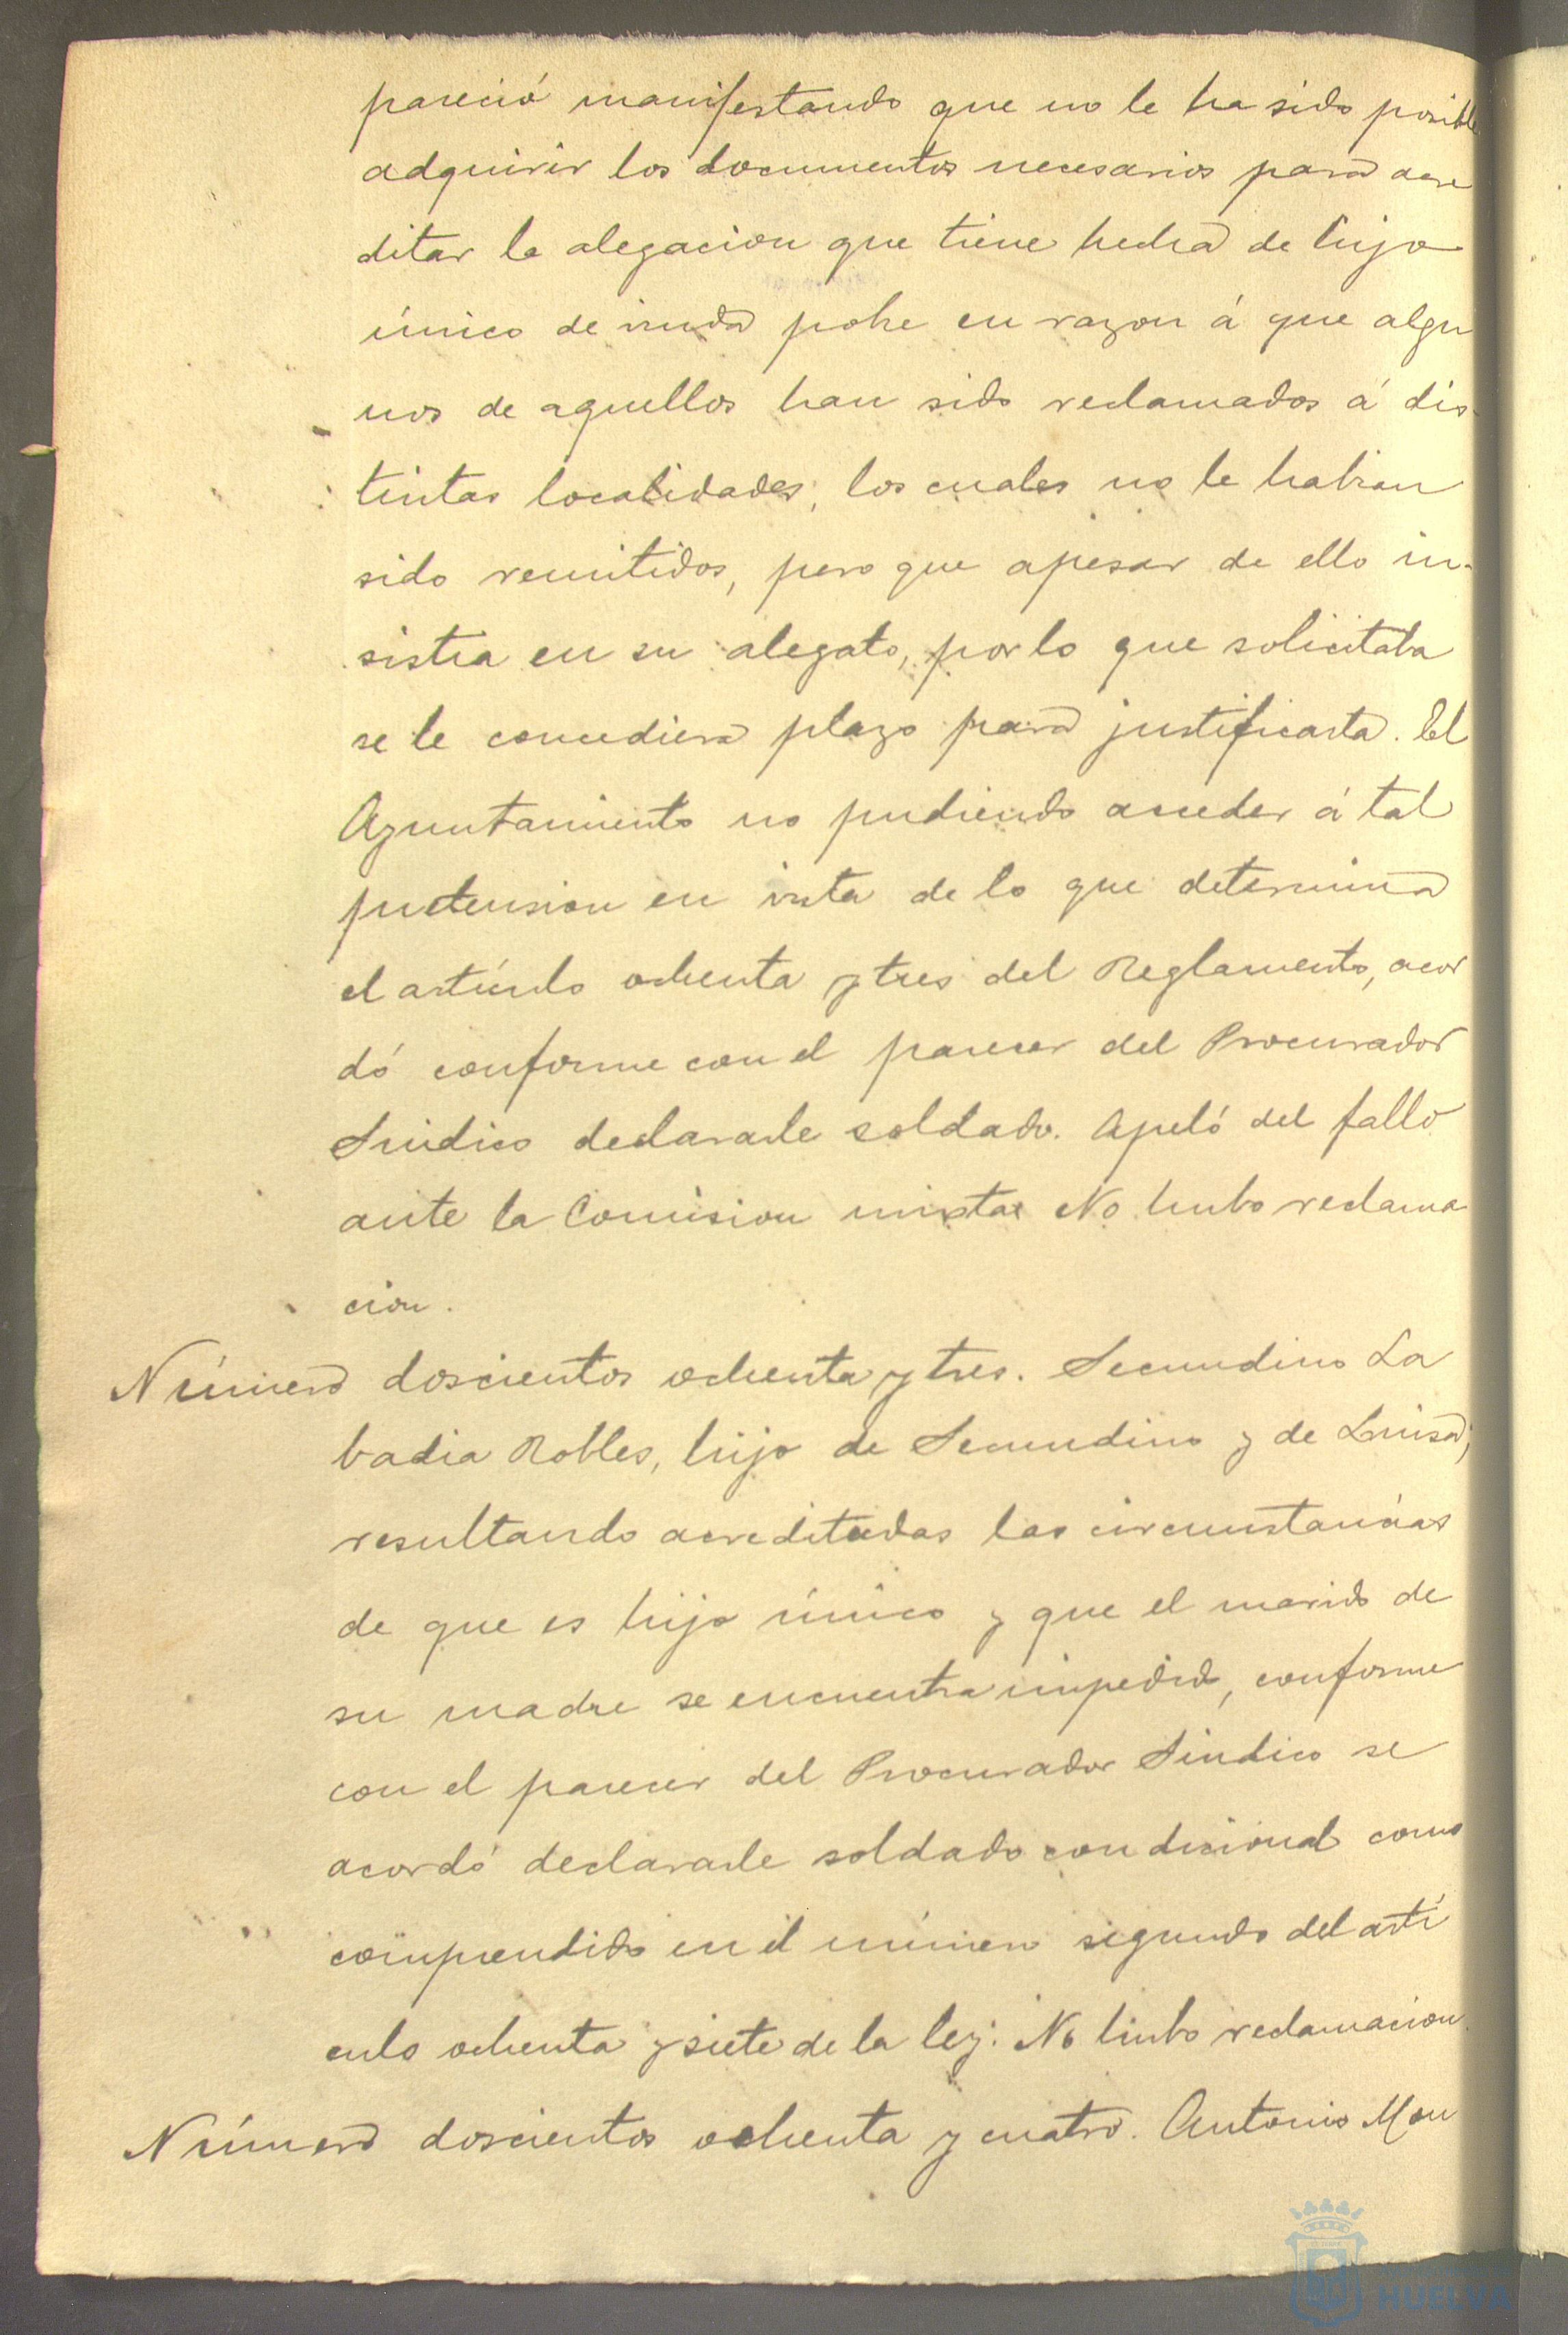 pareció manifestando que no le ha sido posible
adquirir los documentos necesarios para acre
ditar la alegacion que tiene hecha de hijo
único de viuda pobre en razon á que algu
nos de aquellos han sido reclamados á dis-
tintas localidades, los cuales no le habian
sido remitidos, pero que apesar de ello in-
sistia en su alegato, por lo que solicitaba
se le concediera plazo para justificarla. El
Ayuntamiento no pudiendo acceder á tal
pretension en vista de lo que determina
el artículo ochenta y tres del Reglamento, acor
dó conforme con el parecer del Procurador
Sindico declararle soldado. Apeló del fallo
ante la Comision mixta. No hubo reclama
cion.
Número doscientos ochenta y tres. Secundino La
badia Robles, hijo de Secundino y de Luisa;
resultando acreditadas las circunstancias
de que es hijo único y que el marido de
su madre se encuentra impedido, conforme
con el parecer del Procurador Sindico se
acordó declararle soldado condicional como
comprendido en el número segundo del artí
culo ochenta y siete de la ley. No hubo reclamacion.
Número doscientos ochenta y cuatro. Antonio Mon
HUELVA